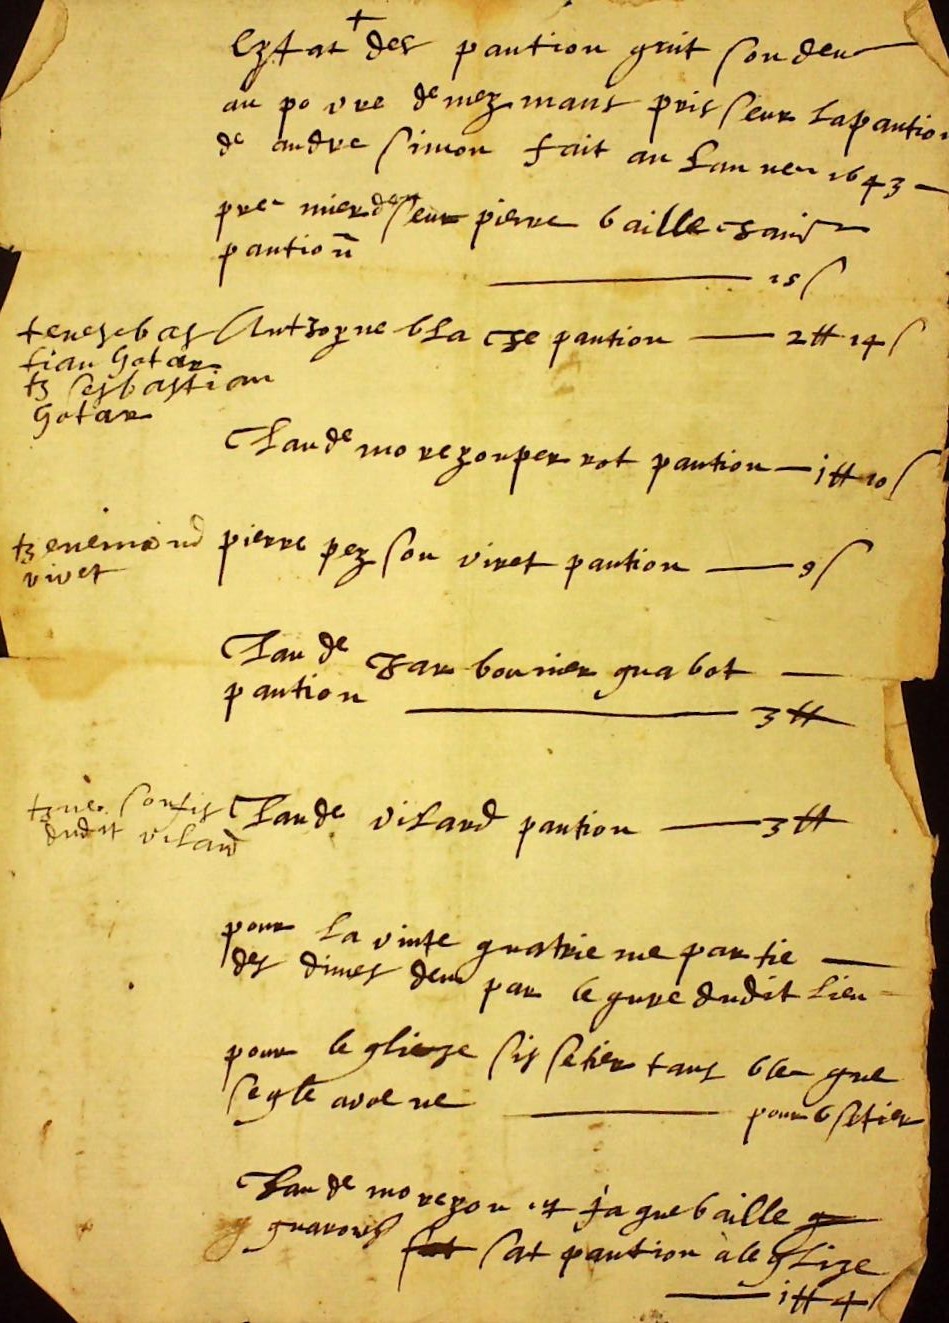 Eztat des pantion qnit son deu
au povre de mez mans pris seur la pantion
de andre simon fait an lan nen 1643
premier de seur pierre baille
pantion 15 s
Anthoyne blache pantion 2 ₶ 14 s
tenes ebas
tian Gotar
tz sesbastian
Gotar
Claude morezon perrot pantion 1 ₶ 10 s
tz enemond
vivet
pierre pezson viret pantion 9 s
Claude charbonnier guabot
pantion 3 ₶
dudit vilard
Claude vilard pantion 3 ₶
pour la vinte quatrieme partie
des dimes deu par le qure dudit lieu
pour leglieze sis setier tans ble que
segle avoene pour 6 setier
Claude morezon et jaque baille
sat pantion a leglize
1 ₶ 4 s